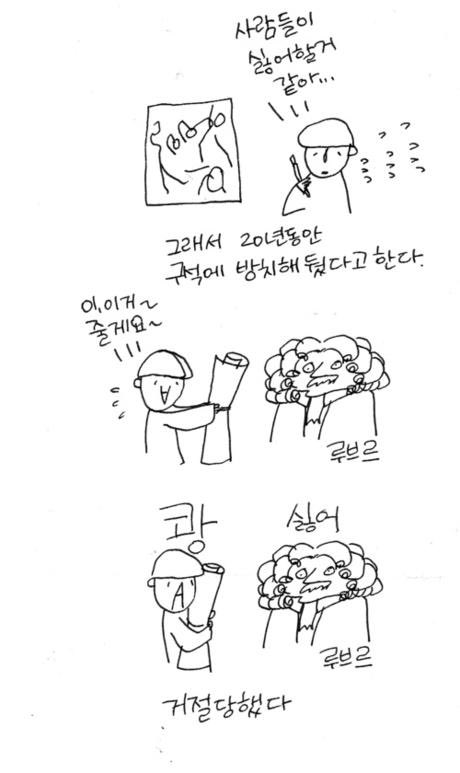 사람들이
싫어할거
같아...
그래서 20년동안
구석에 방치해 뒀다고 한다.
이,이거~
줄게요~
루브르
쾅
싫어
루브르
거절당했다